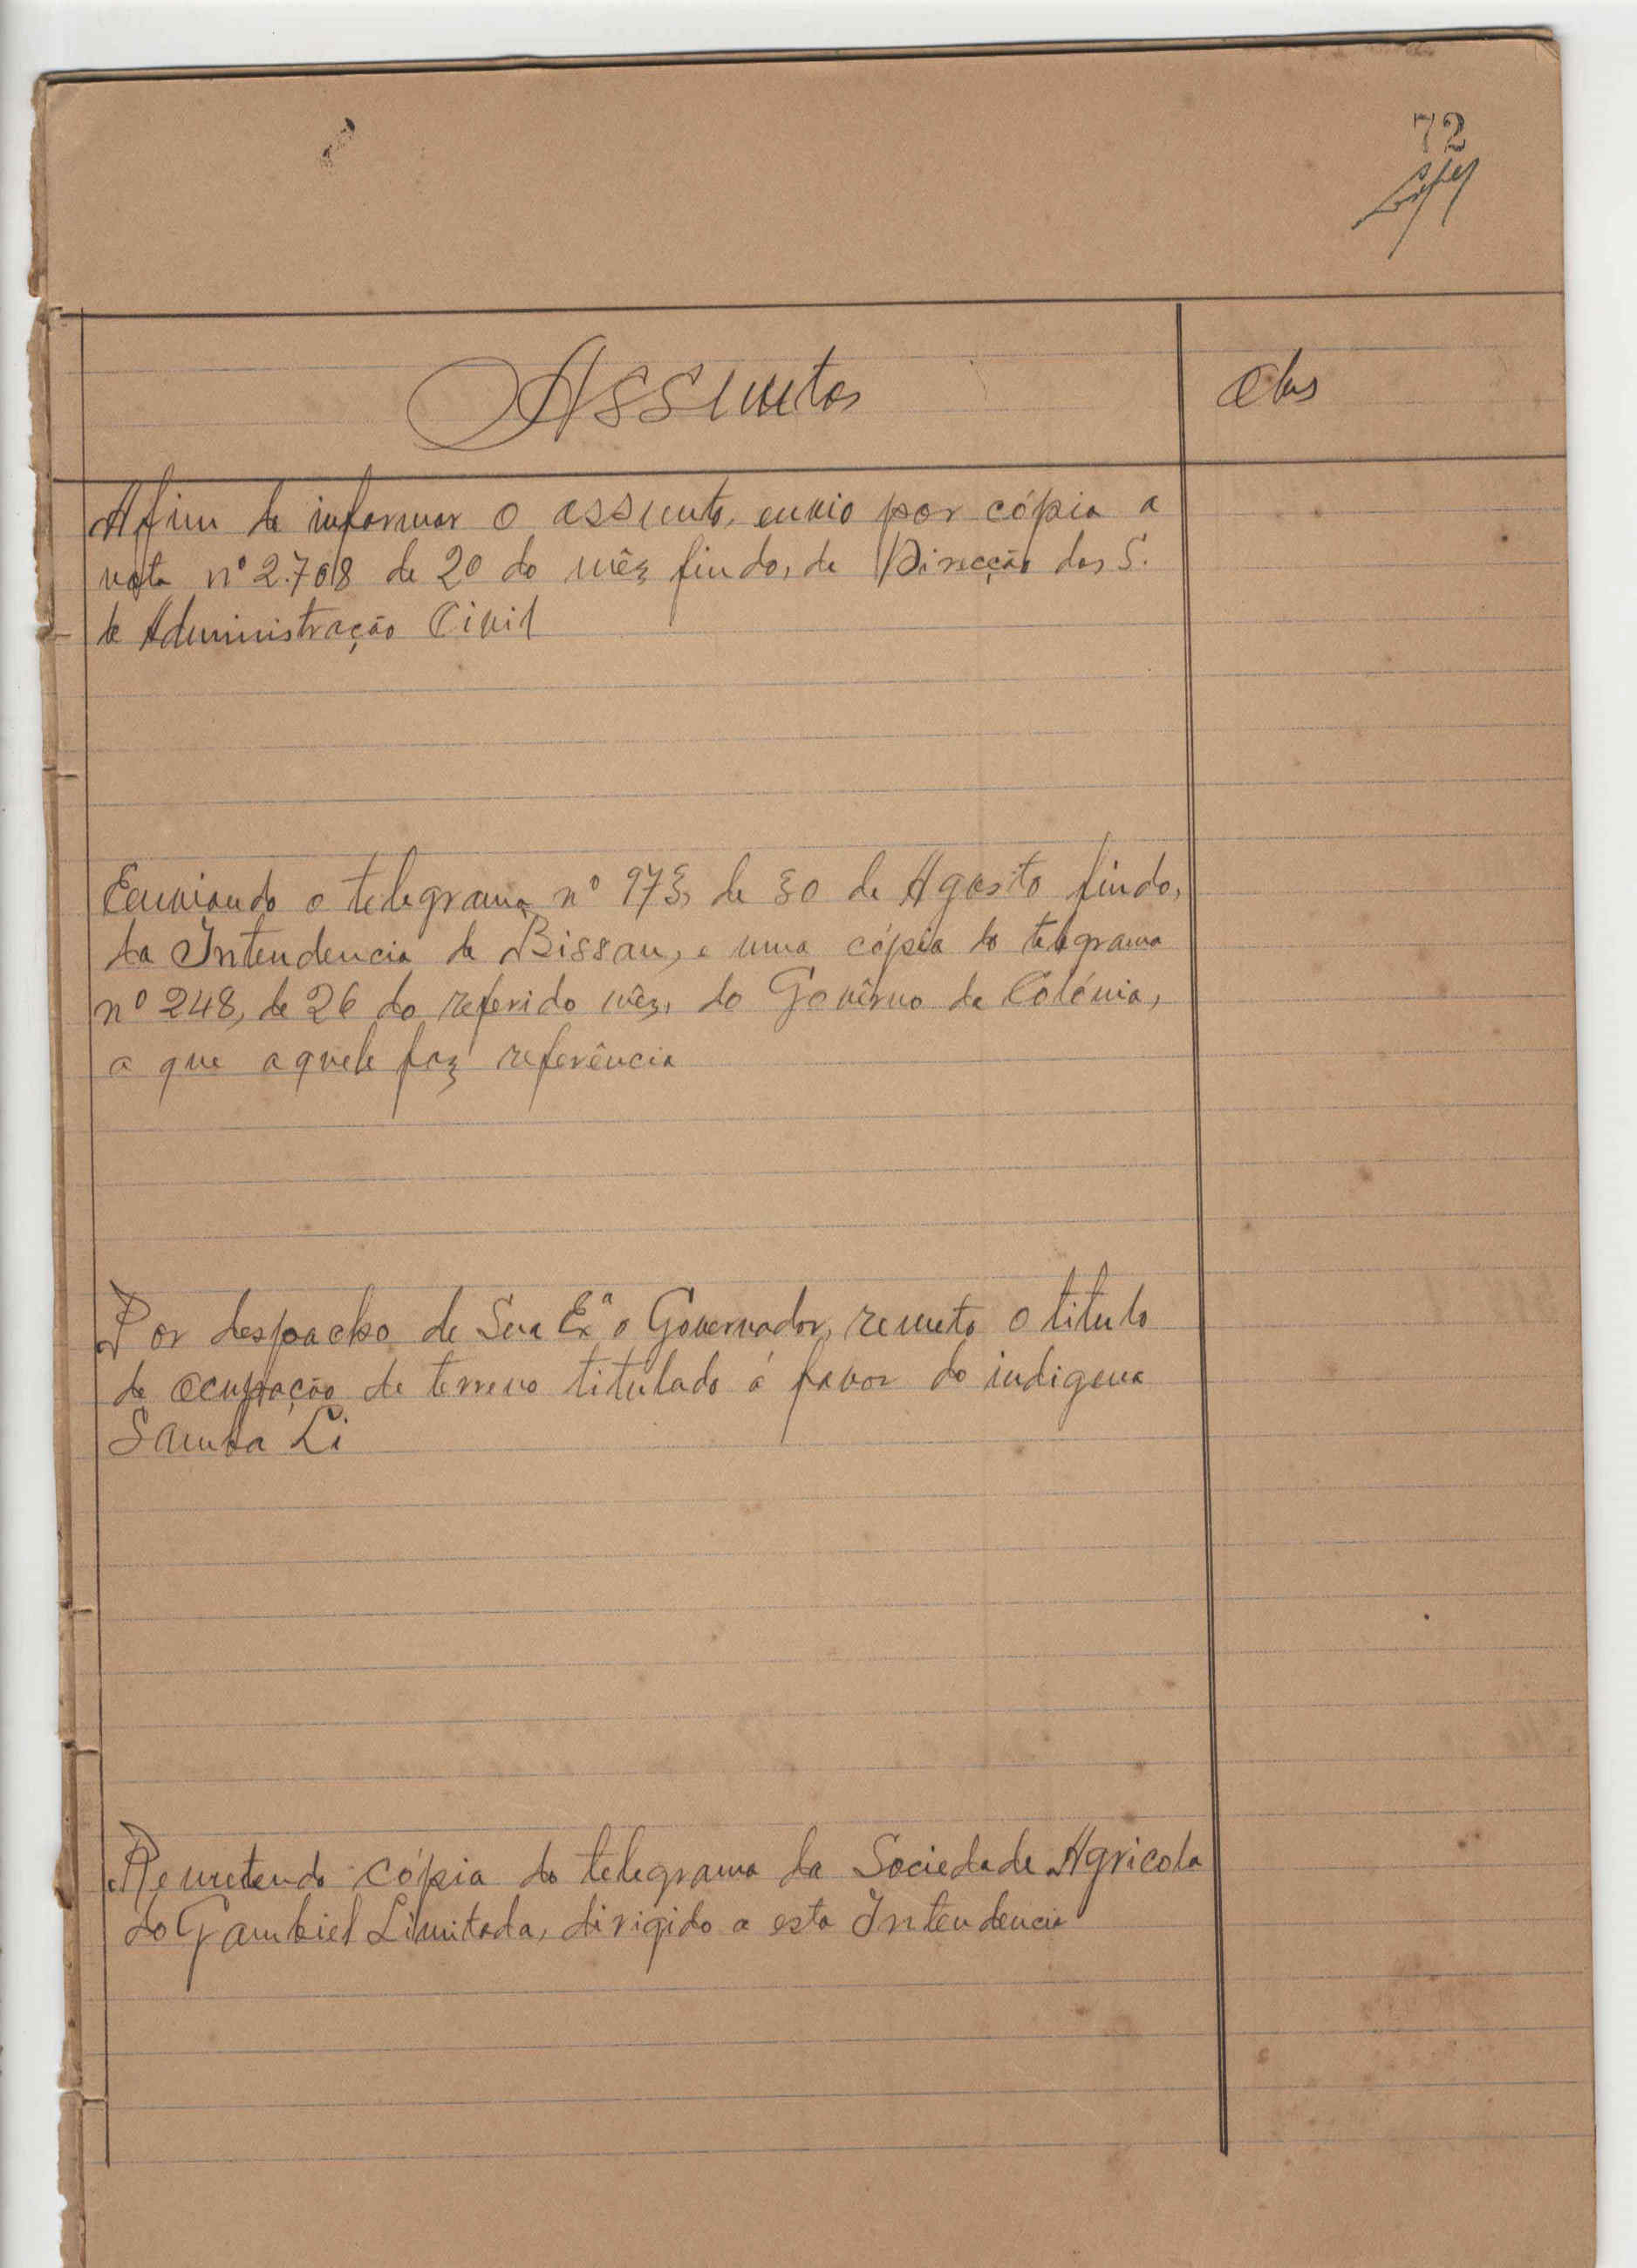 72
Assuntos
Obs
Affim de informar o assunto, envio por cópia a
nota nº 2.708 de 20 do mês findo, da Direcção dos S.
de Administração Civil
Enviando o telegrama nº 973, de 30 de Agosto findo,
da Intendencia de Bissau, e uma cópia do telegrama
nº 248, de 26 do referido mês, do Govêrno da Colónia,
a que aquele faz referência
Por despacho de Sua Exª o Governador, remeto o titulo
de ocupação de terreno titulado á favor do indigena
Samba Li
Remetendo cópia do telegrama da Sociedade Agricola
do Gambiel Limitada, dirigido a esta Intendencia